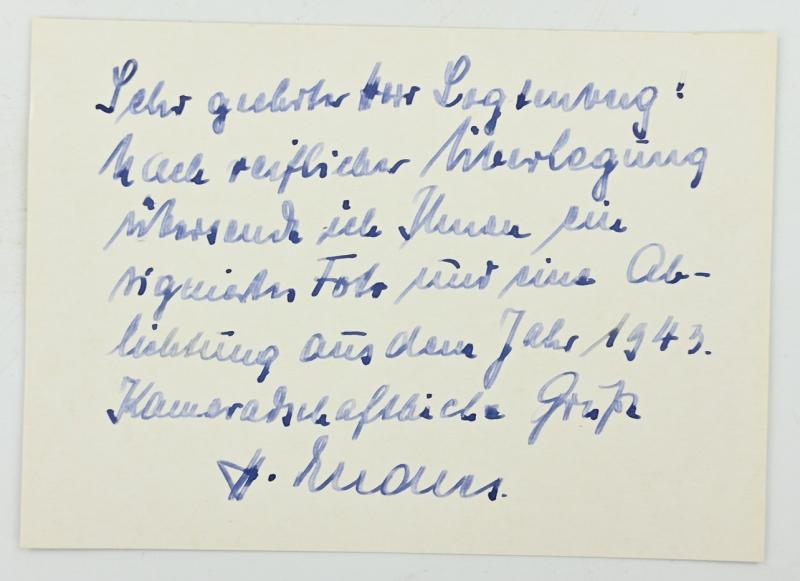 Sehr geehrter Herr Logtenberg:
Nach reiflicher Überlegung
übersende ich Ihnen ein
signiertes Foto und eine Ab-
lichtung aus dem Jahr 1943.
Kameradschaftliche Grüße
H. Enders.